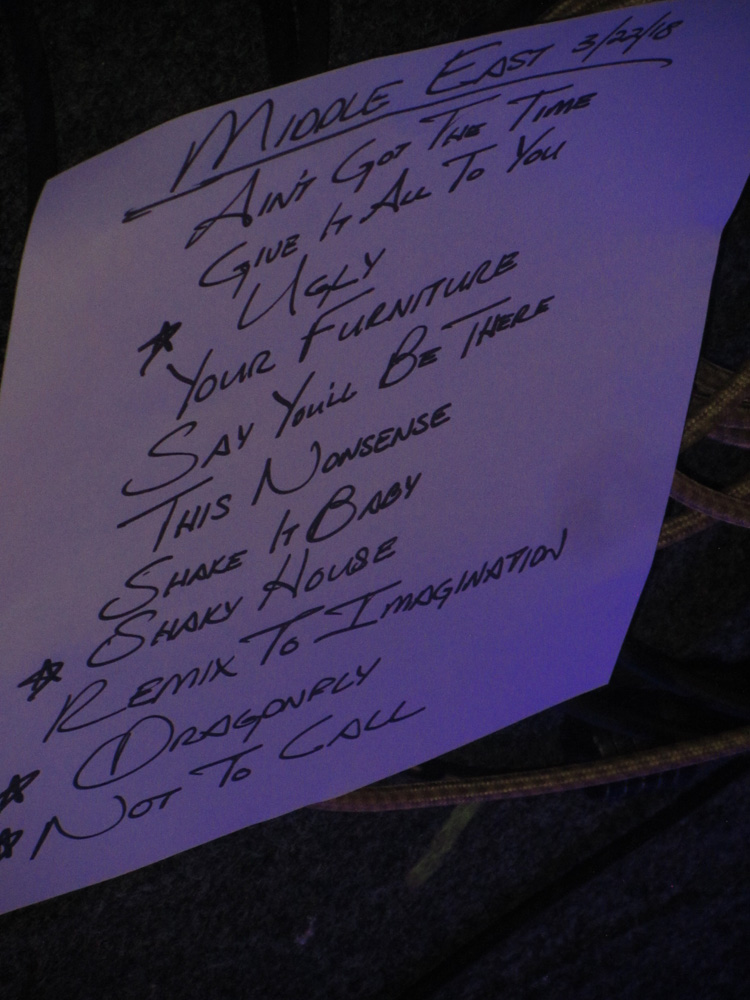 MIDDLE EAST 3/22/18
AIN'T GOT THE TIME
GIVE IT ALL TO YOU
UGLY
★ YOUR FURNITURE
SAY YOU'LL BE THERE
THIS NONSENSE
SHAKE IT BABY
SHAKY HOUSE
★ REMIX TO IMAGINATION
★ DRAGONFLY
★ NOT TO CALL